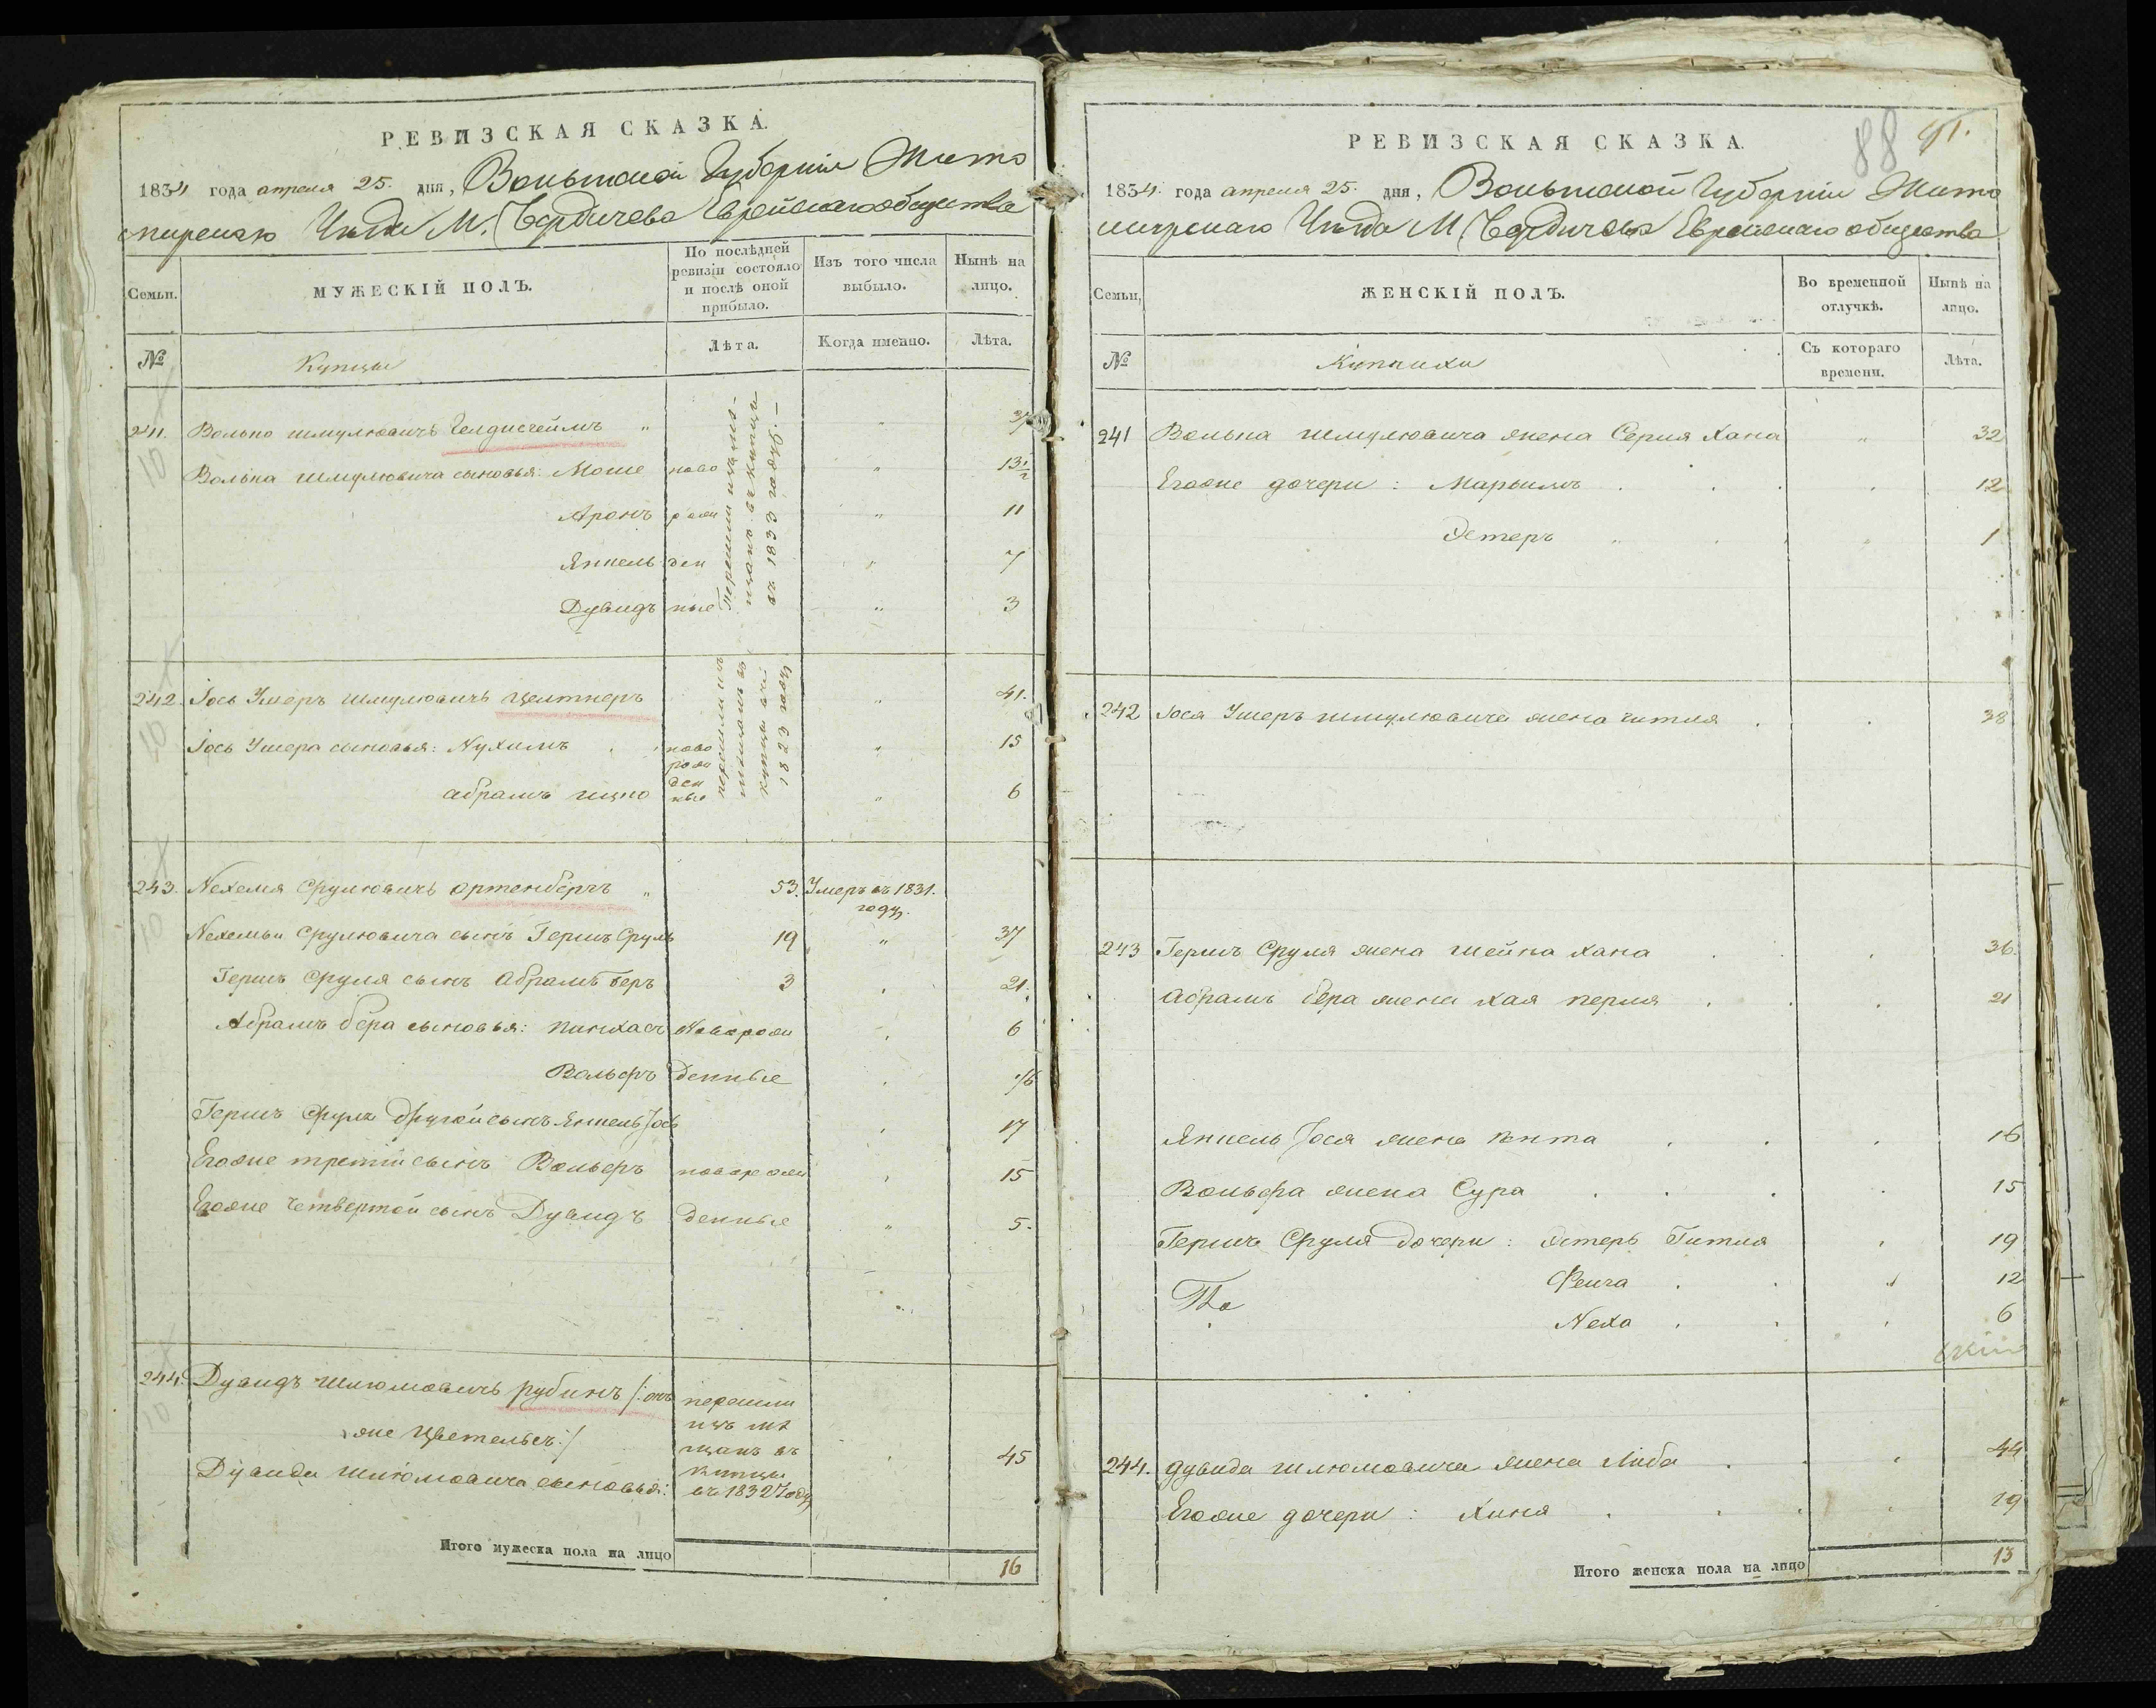 РЕВИЗСКАЯ СКАЗКА.
1834 года апреля 25. дня, Волынской Губерніи Жито
мирскаго Уезда М. Бердичева Еврейскаго общества
Семьи.
МУЖЕСКІЙ ПОЛЪ.
По послѣдней ревизіи состояло и послѣ оной прибыло.
Изъ того числа выбыло.
Нынѣ на лицо.
№
Купцы
Лѣта.
Когда именно.
Лѣта.
241. Волько Шмулювичъ "
Волька Шмулювича сыновья: Моше ново " 13 1/2
Аронъ рож " 11
Янкель ден " 7
Дувидъ ные " 3
перешли изъ ме-
щанъ въ купцы
въ 1833 году. —
242. Іось Умеръ Шмулювичъ Целтнеръ " 41.
Іось Умера сыновья: Нухимъ " 15
Абрамъ Ицко " 6
новорожденные
перешли изъ
мещанъ въ
купцы въ
1823 году
243. Нехемя Срулювичъ Ортенбергъ " 53. Умеръ въ 1831. году.
Нехемьи Срулювича сынъ Гершъ Сруль 19 " 37
Гершъ Сруля сынъ Абрамъ Беръ 3 21.
Абрамъ Бера сыновья: ПинхасъНоворож 6
Вольфъ денные
Гершъ Сруля другой сынъ Янкель Іось 17
Егоже третій сынъ Вольфъ новорож 15
Егоже четвертой сынъ Дувидъ денные " 5.
244. Дувидъ Шлюмовичъ Рубинъ /: онъ
же Цветельсъ :/ 45
перешли
изъ ме
щанъ въ
купцы
въ 1832 году
Дувида Шлюмовича сыновья:
Итого мужеска пола на лицо 16
88
РЕВИЗСКАЯ СКАЗКА.
1834. года апреля 25. дня, Волынской Губерніи Жито
мирскаго Уезда М Бердичева Еврейскаго общества
Семьи,
ЖЕНСКІЙ ПОЛЪ.
Во временной отлучкѣ.
Нынѣ на лицо.
№
Купчихи
Съ котораго времени.
Лѣта.
241 Волька Шмулювича жена Серля Хана " 32
Егоже дочери: Марьямъ 12
Эстеръ " 1
242 Іося Умеръ Шмулювича жена Гитля 38
243 Гершъ Сруля жена Шейна Хана 36.
Абрамъ Бера жена Хая Перля 21
Янкель Іося жена Гита 16
Вольфа жена Сура 15
Гершъ Сруля дочери: Эстеръ Гитля 19
Фейга 12
Неха 6
244. Дувида Шлюмовича жена Либа 44
Егоже дочери: Хиня 19
Итого женска пола на лицо 13